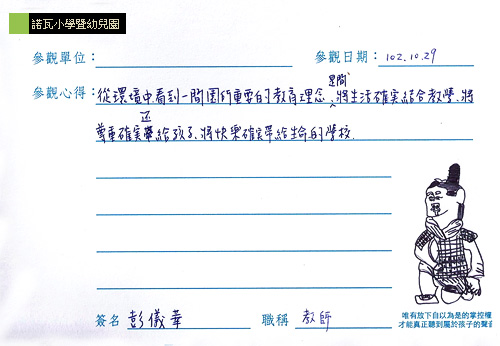 諾瓦小學暨幼兒園
參觀單位：
參觀日期：102.10.29
參觀心得：從環境中看到一間園所重要的教育理念、是間將生活確實結合教學、將
尊重確實還給孩子、將快樂確實帶給生命的學校.
簽名 彭儀華 職稱 教師
唯有放下自以為是的掌控權
才能真正聽到屬於孩子的聲音